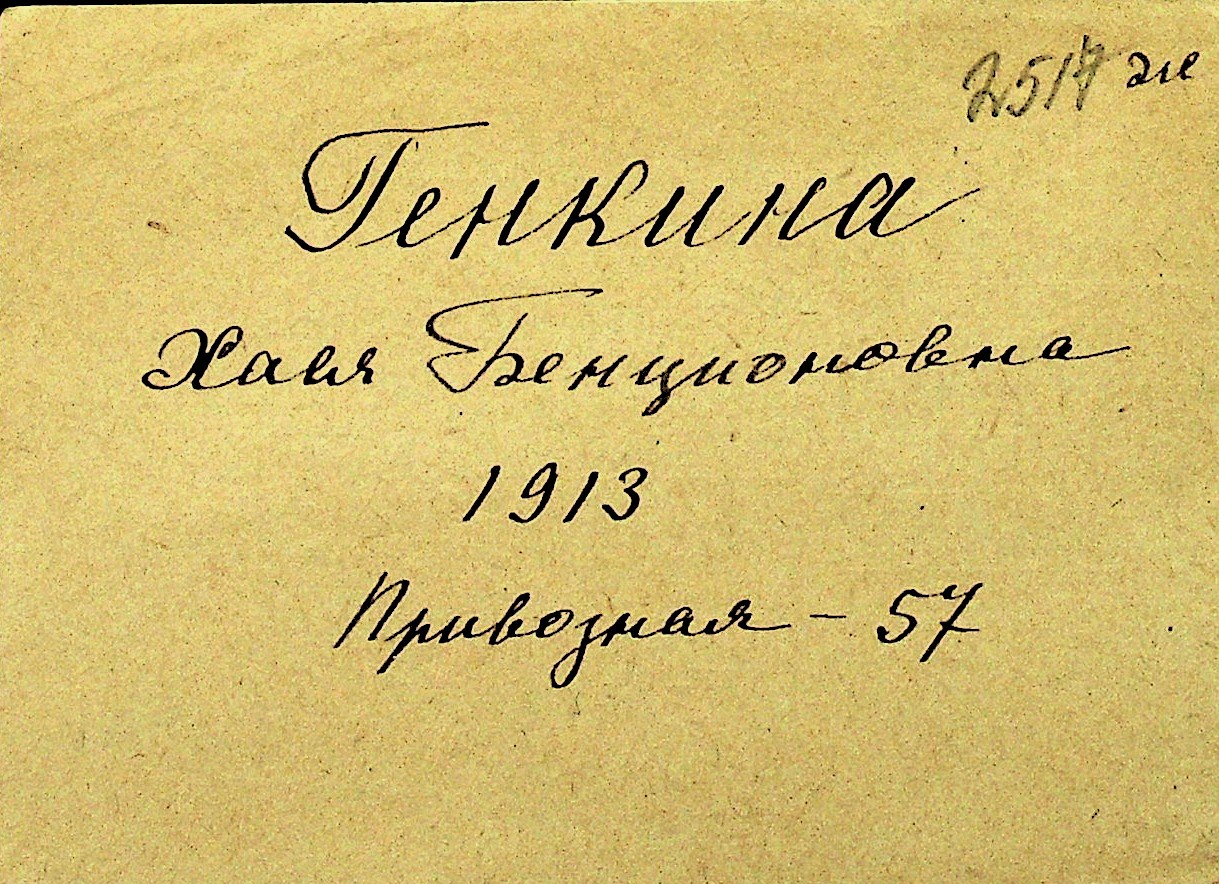 2517 же
Генкина
Хавя Бенционовна
1913
Привозная - 57